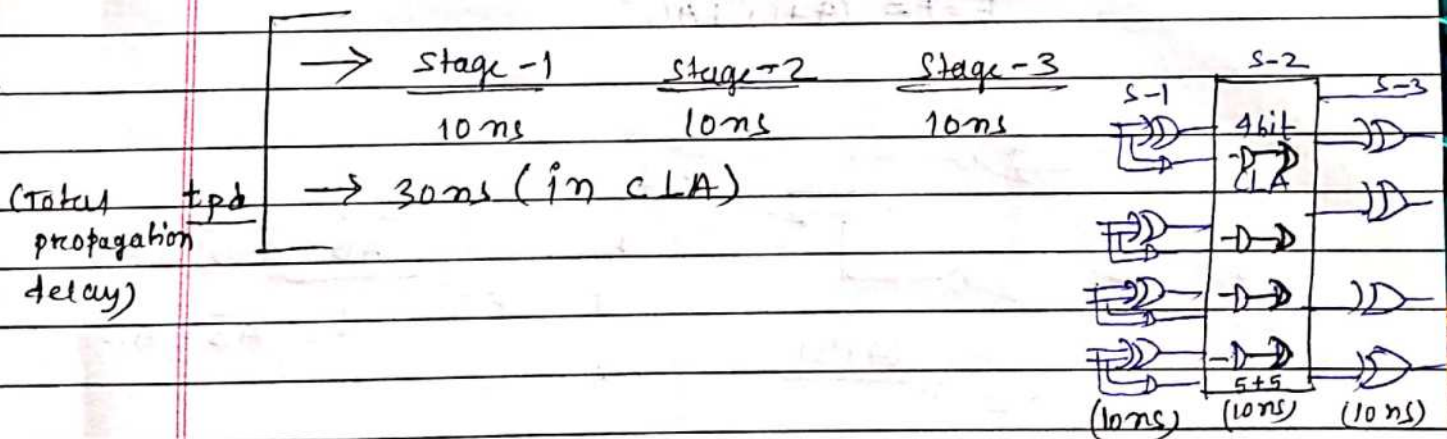 → Stage-1 Stage-2 Stage-3
10 ns 10 ns 10 ns
→ 30 ns (in CLA)
(Total tpd
propagation
delay)
S-1 S-2 S-3
4bit
CLA
5+5
(10 ns) (10 ns) (10 ns)